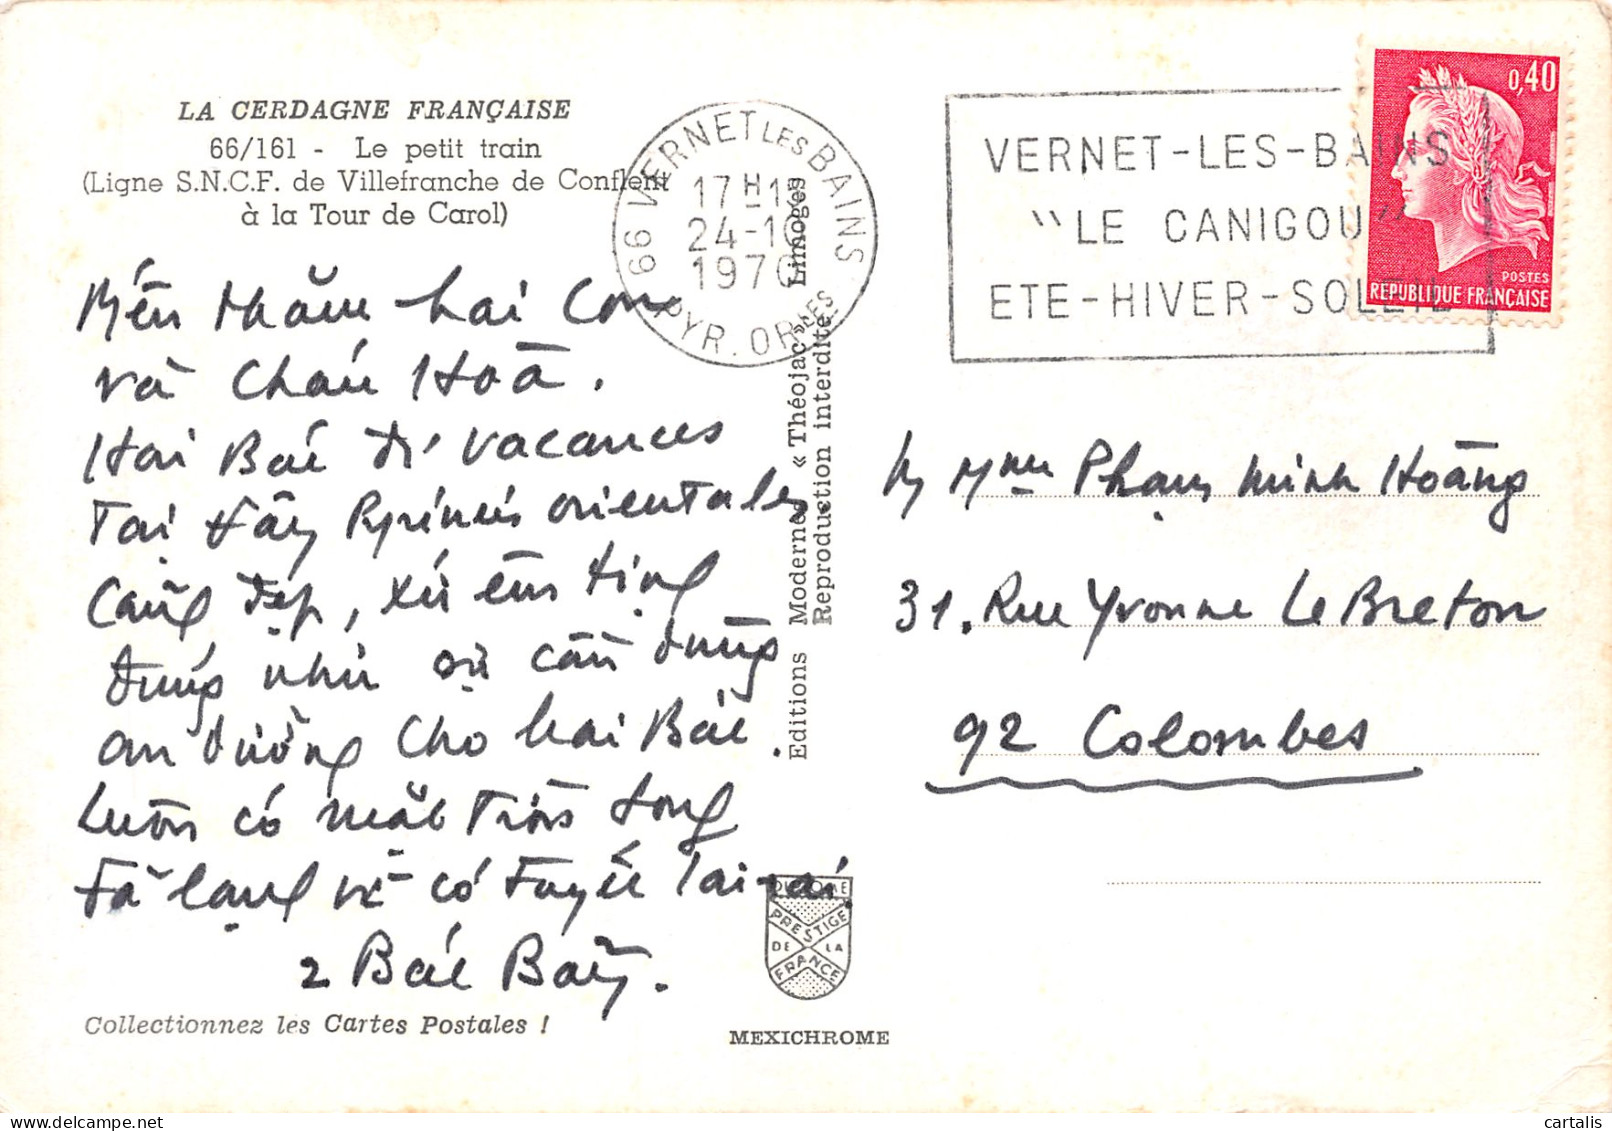 LA CERDAGNE FRANÇAISE
66/161 - Le petit train
(Ligne S.N.C.F. de Villefranche de Conflent
à la Tour de Carol)
Mến thăm hai Con
và Cháu Hoà.
Hai Bác đi vacances
Tại đây Pyrénées orientales
Cảnh đẹp, xứ êm tịnh
đúng như sự cần dùng
an dưỡng cho hai Bác.
Luôn có mặt Trời song
đã lạnh và có Tuyết rồi.
2 Bác Bảy.
Collectionnez les Cartes Postales !
66 VERNET LES BAINS
17H15
24-10
1970
PYR. ORLES
Editions Modernes « Théojac » Limoges
Reproduction interdite
PRESTIGE
DE LA
FRANCE
MEXICHROME
VERNET-LES-BAINS
"LE CANIGOU"
ETE-HIVER-SOLEIL
0,40
POSTES
REPUBLIQUE FRANÇAISE
M Mme Phạm Minh Hoàng
31. Rue Yvonne Le Breton
92 Colombes
cartalis